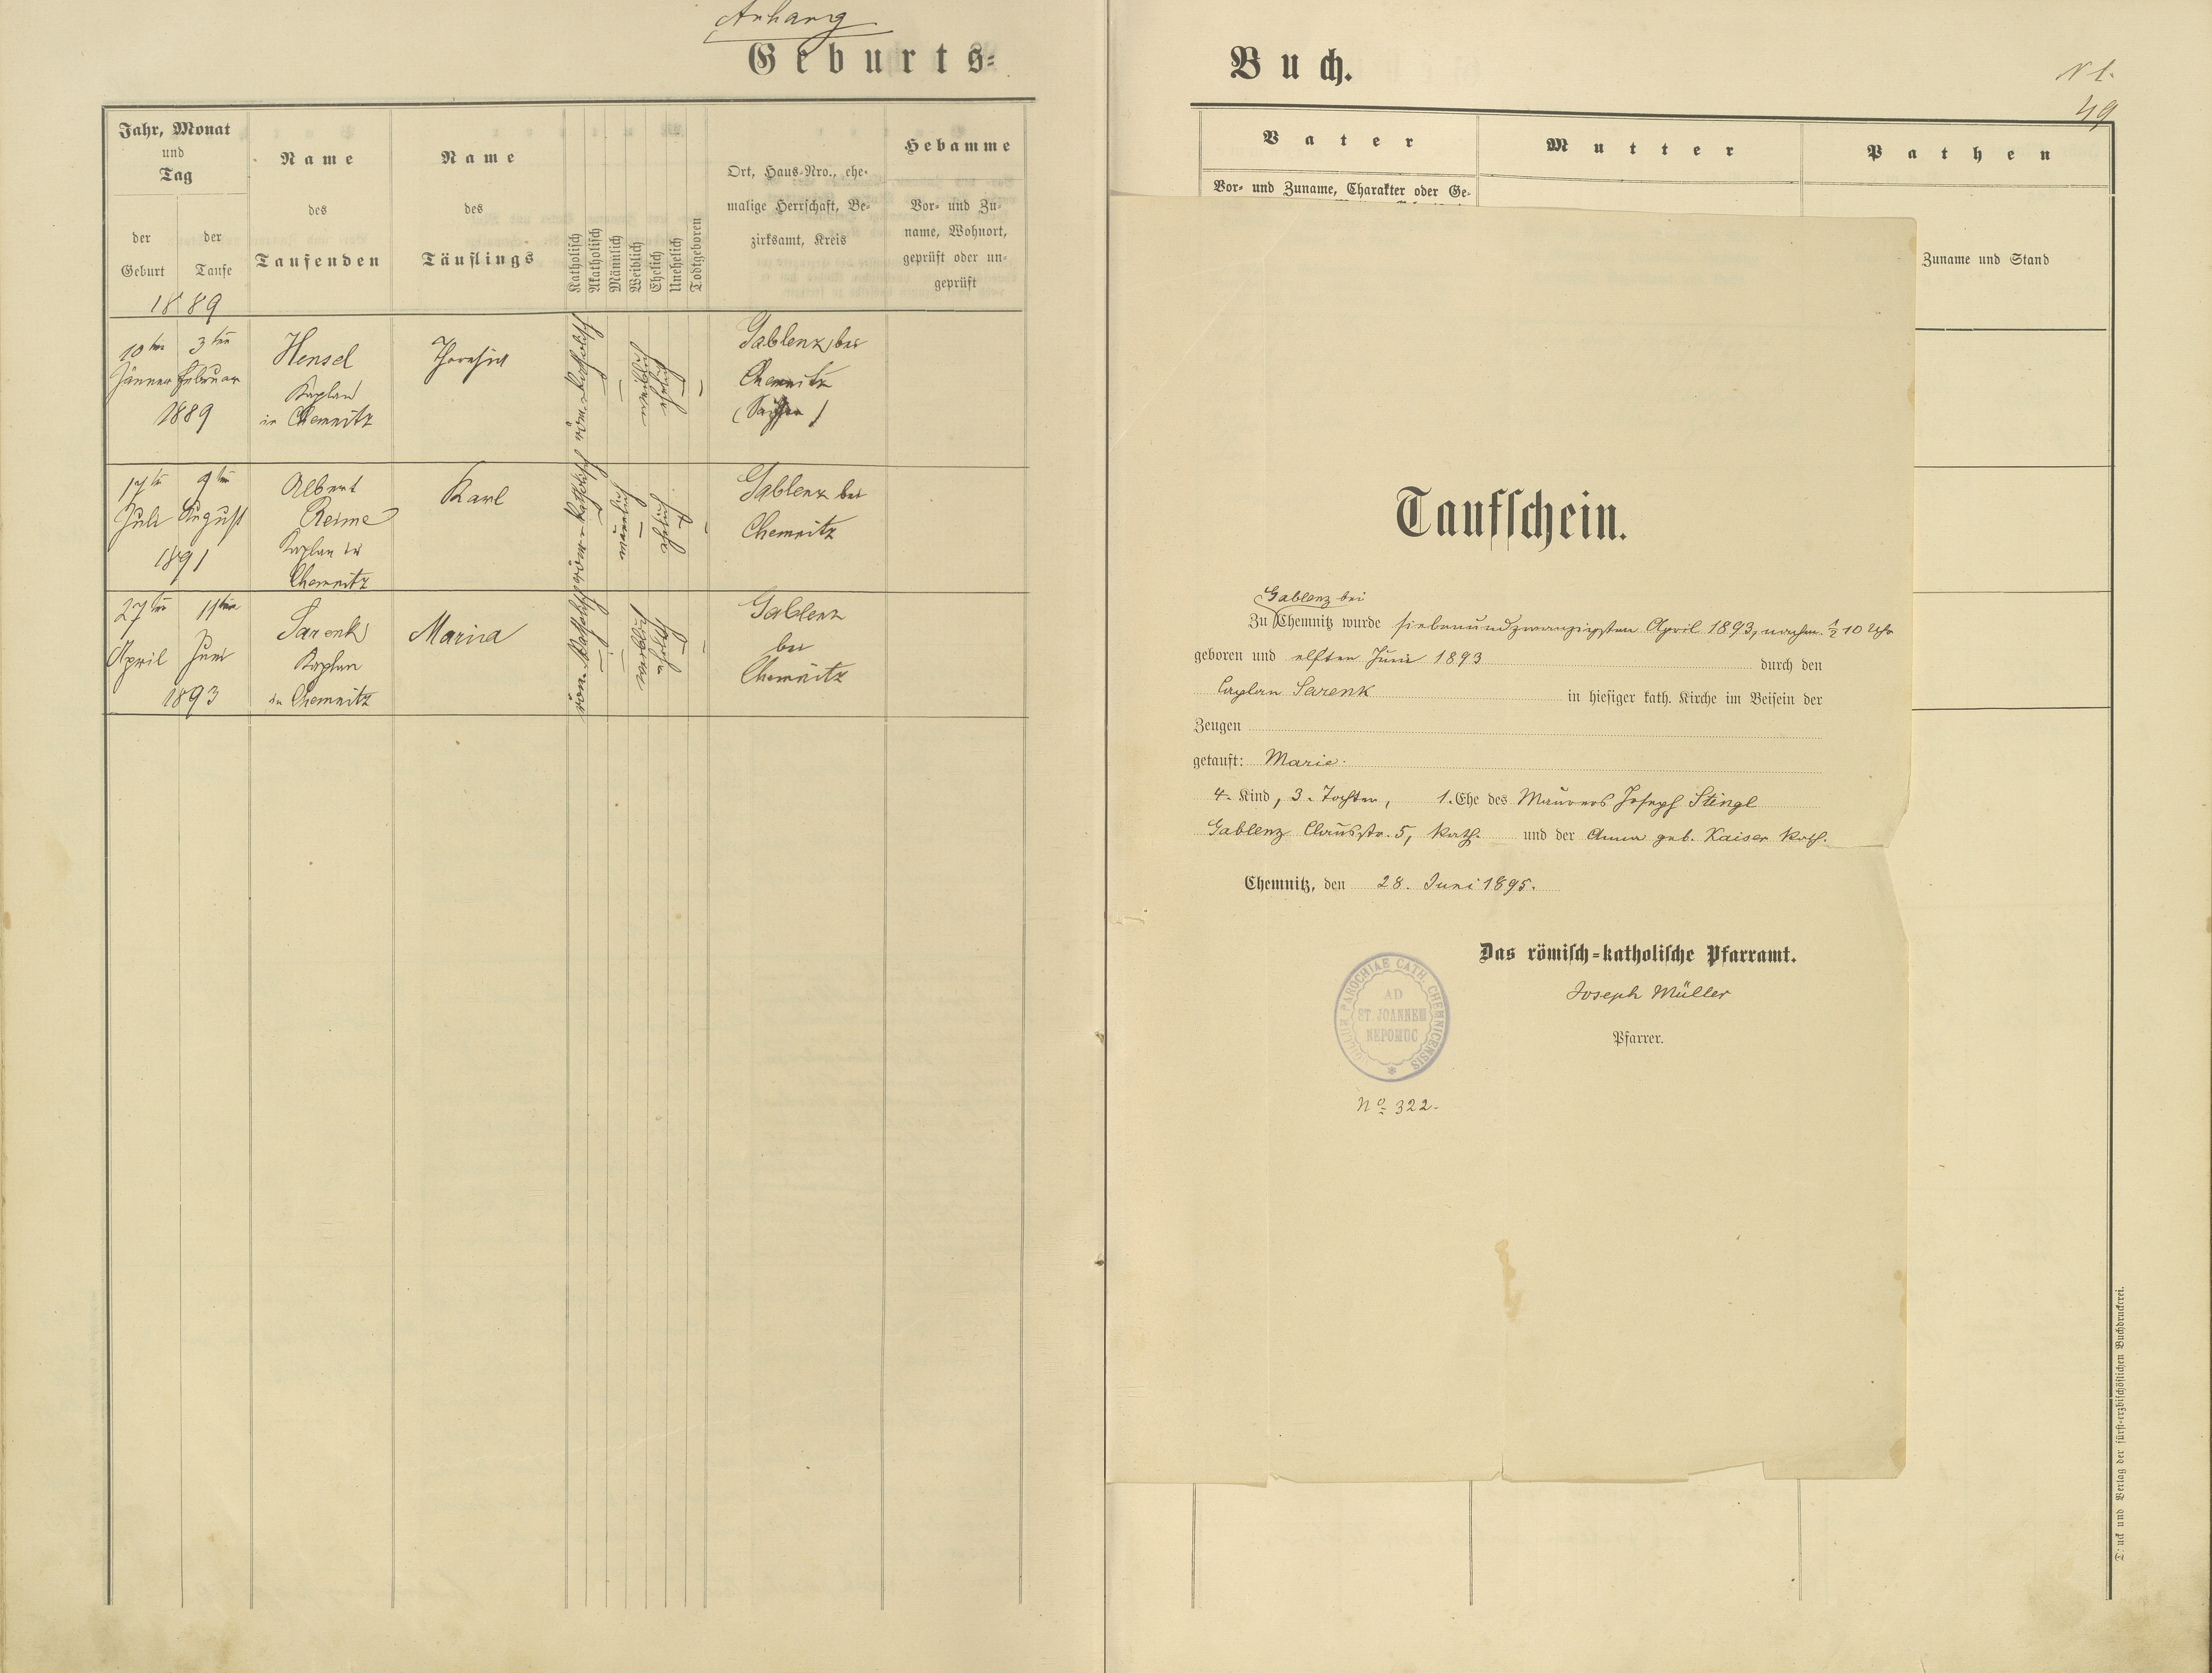 Anhang
Geburts-
Jahr, Monat
und
Tag
der
Geburt
der
Taufe
1889
Name
des
Taufenden
Name
des
Täuflings
Katholisch
Akatholisch
Männlich
Weiblich
Ehelich
Unehelich
Todtgeboren
Ort, Haus-Nro., ehe-
malige Herrschaft, Be-
zirksamt, Kreis
Hebamme
Vor- und Zu-
name, Wohnort,
geprüft oder un-
geprüft
10ten 3ten
Jänner Februar
1889
Hensel
Kaplan
in Chemnitz
röm. katholisch
weiblich
ehelich
Gablenz bei
Chemnitz
(Sachsen)
17te 9ten
Juli August
1891
Albert
Reime
Kaplan in
Chemnitz
Karl
röm. katholisch
männlich
ehelich
Gablenz bei
Chemnitz
27ten 11ten
April Juni
1893
Sarenk
Kaplan
in Chemnitz
Maria
röm. katholisch
weiblich
ehelich
Gablenz
bei
Chemnitz
Buch.
49
Vater
Vor- und Zuname, Charakter oder Ge-
Mutter
Pathen
Zuname und Stand
Taufschein.
Gablenz bei
Zu Chemnitz wurde siebenundzwanzigsten April 1893, nachm. ½10 Uhr
geboren und elften Juni 1893 durch den
Caplan Sarenk in hiesiger kath. Kirche im Beisein der
Zeugen
getauft: Marie.
4. Kind, 3. Tochter, 1. Ehe des Maurers Joseph Stingl
Gablenz Clausstr. 5, kath. und der Anna geb. Kaiser kath.
Chemnitz, den 28. Juni 1895.
Das römisch-katholische Pfarramt.
Joseph Müller
Pfarrer.
SIGILLUM PAROCHIAE CATH. CHEMNICENSIS
AD
ST. JOANNEM
NEPOMUC
No. 322.
Druck und Verlag der fürst-erzbischöflichen Buchdruckerei.